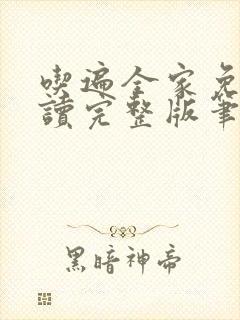 喫遍全家免
讀完整版筆
黑暗神帝